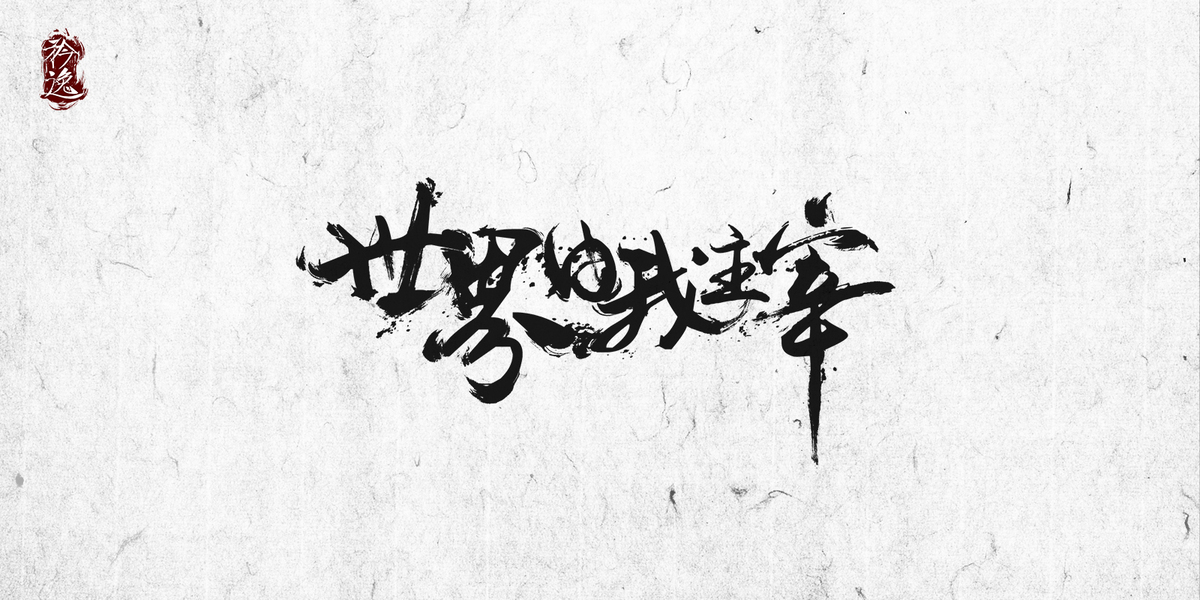 矜
逸
世界由我主宰